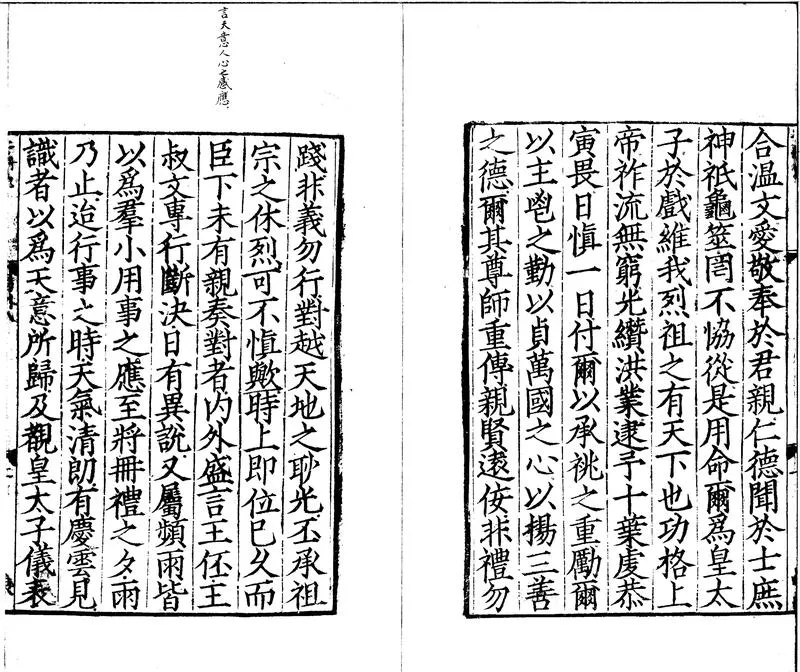 合溫文愛敬奉於君親仁德聞於士庶
神祇龜筮罔不協從是用命爾爲皇太
子於戲維我烈祖之有天下也功格上
帝祚流無窮光纘洪業逮予十葉虔恭
寅畏日愼一日付爾以承祧之重勵爾
以主鬯之勤以貞萬國之心以揚三善
之德爾其尊師重傅親賢遠佞非禮勿
言天意人心之感應
踐非義勿行對越天地之耿光丕承祖
宗之休烈可不愼歟時上即位已久而
臣下未有親奏對者內外盛言王伾王
叔文專行斷決日有異說又屬頻雨皆
以爲羣小用事之應至將冊禮之夕雨
乃止迨行事之時天氣淸朗有慶雲見
識者以爲天意所歸及觀皇太子儀表